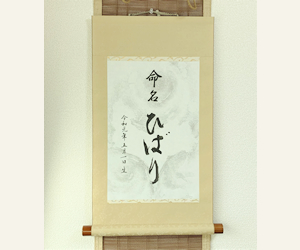 命名
ひばり
令和元年五月一日生